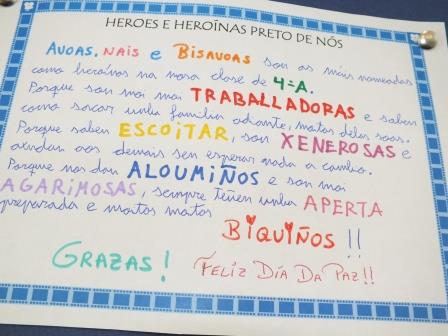 HEROES E HEROÍNAS PRETO DE NÓS
AVOAS, NAIS e BISAVOAS son as máis nomeadas
como heroínas na nosa clase de 4ºA.
Porque son moi moi TRABALLADORAS e saben
como sacar unha familia adiante, moitas delas soas.
Porque saben ESCOITAR, son XENEROSAS e
axudan aos demais sen esperar nada a cambio.
Porque nos dan ALOUMIÑOS e son moi
AGARIMOSAS, sempre teñen unha APERTA
preparada e moitos moitos
BIQUIÑOS !!
GRAZAS!
FELIZ DÍA DA PAZ!!